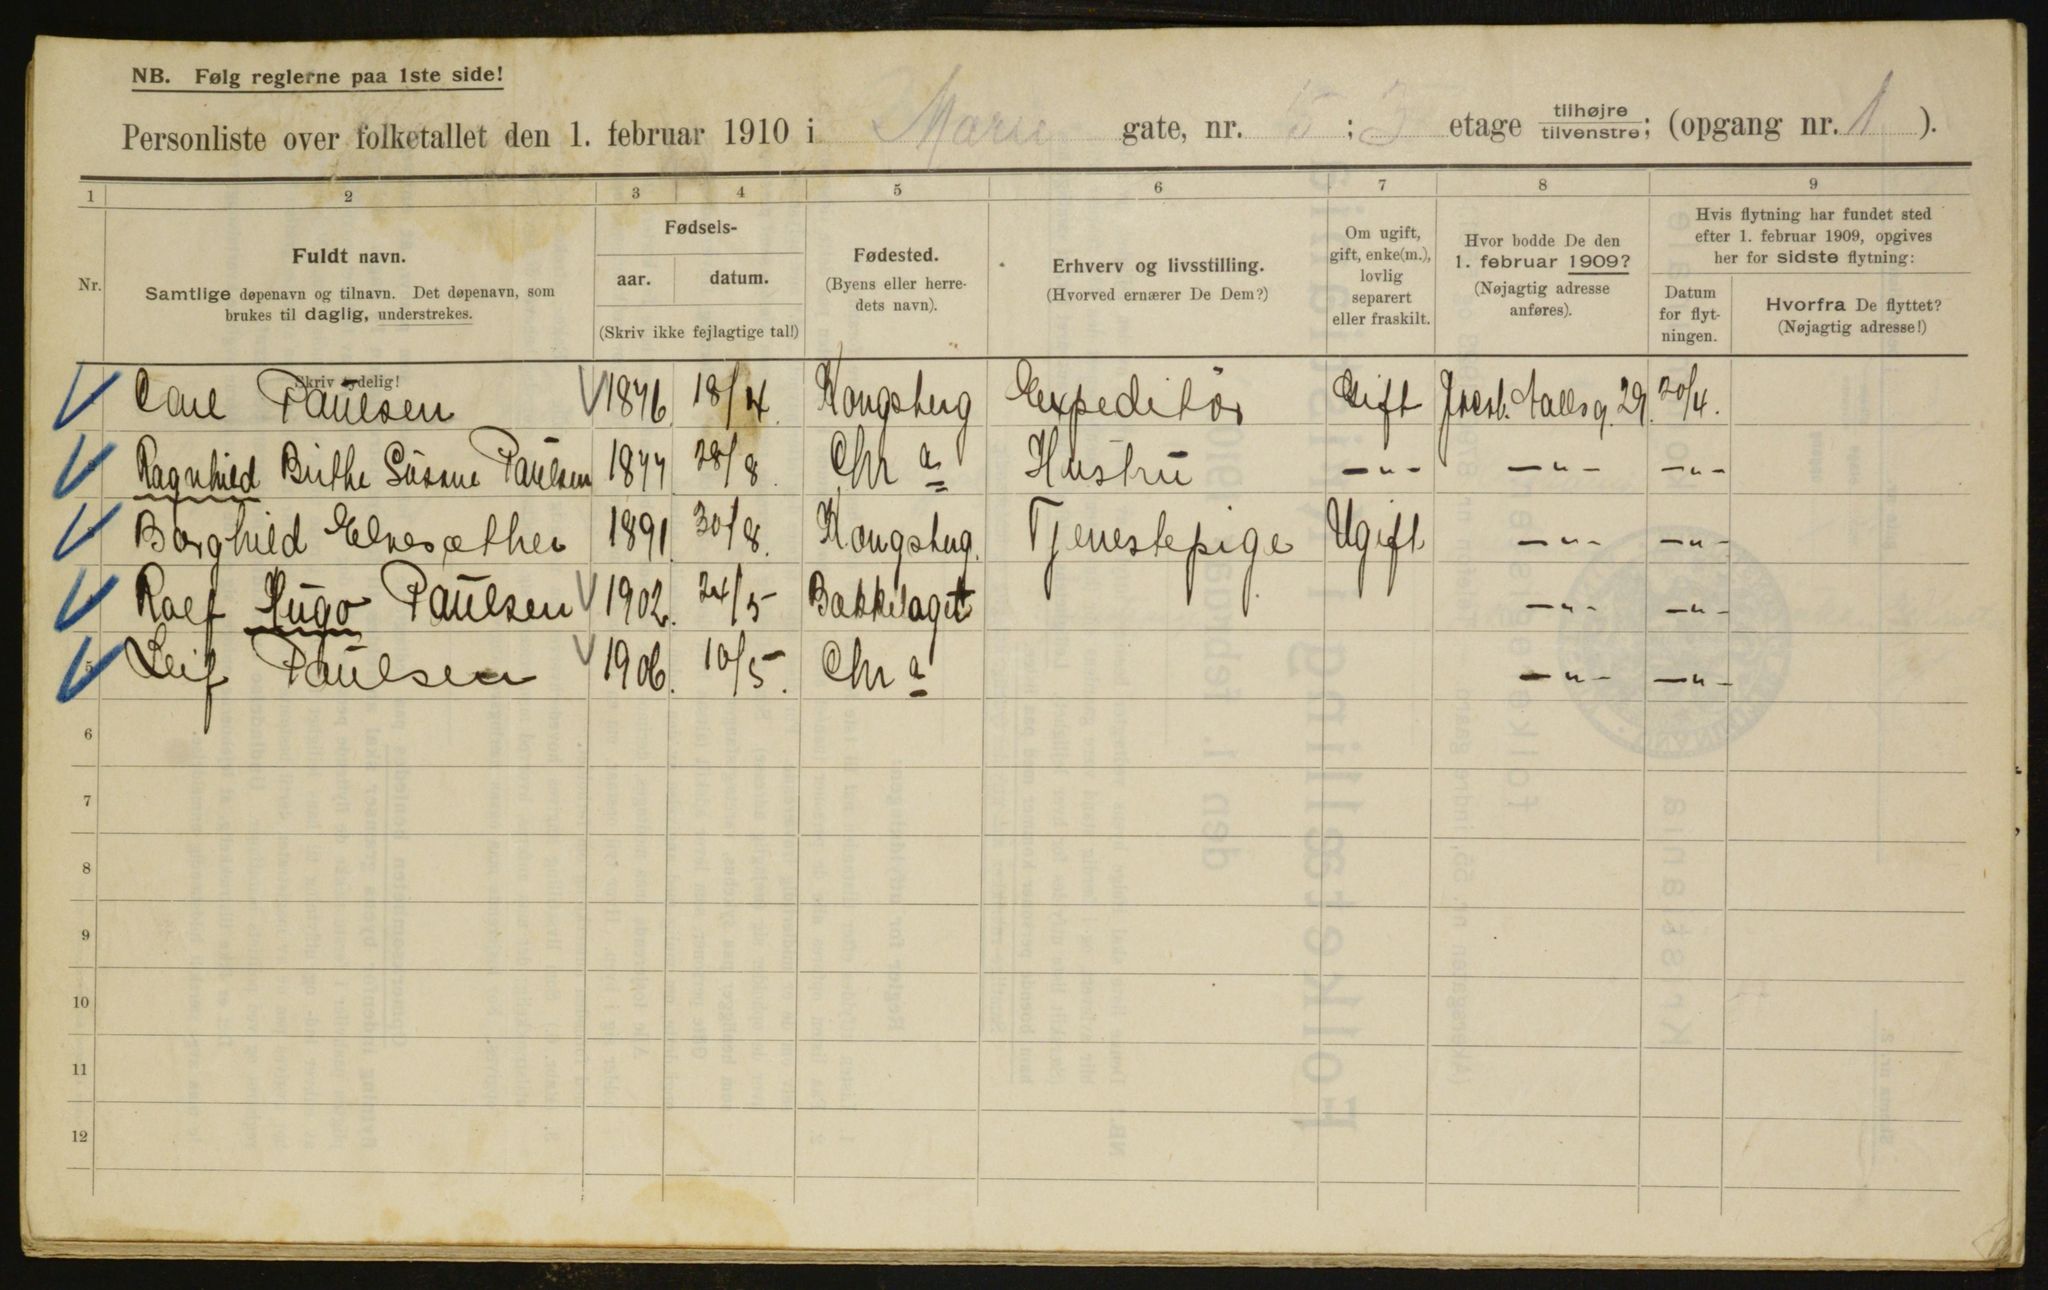 NB. Følg reglerne paa 1ste side!
Personliste over folketallet den 1. februar 1910 i Marie gate, nr. 5; 3 etage tilhøjre tilvenstre; (opgang nr. 1).
1 2 3 4 5 6 7 8 9
Nr.
Fuldt navn.
Samtlige døpenavn og tilnavn. Det døpenavn, som
brukes til daglig, understrekes.
Skriv tydelig!
Fødsels-
aar. datum.
(Skriv ikke fejlagtige tal!)
Fødested.
(Byens eller herre-
dets navn).
Erhverv og livsstilling.
(Hvorved ernærer De Dem?)
Om ugift,
gift, enke(m.),
lovlig
separert
eller fraskilt.
Hvor bodde De den
1. februar 1909?
(Nøjagtig adresse
anføres).
Hvis flytning har fundet sted
efter 1. februar 1909, opgives
her for sidste flytning:
Datum
for flyt-
ningen.
Hvorfra De flyttet?
(Nøjagtig adresse!)
Carl Paulsen 1876. 18/4. Kongsberg Expeditør Gift Aallsg. 29. 20/4.
Ragnhild Birthe Susane Paulsen 1877 28/8. Chr a Hustru —"— —"— —"—
Borghild Elvesæther 1891. 30/8. Kongsberg. Tjenestepige Ugift —"— —"—
Rolf Hugo Paulsen 1902. 24/5 Bækkelaget —"— —"—
5 Leif Paulsen 1906. 10/5. Chr a —"— —"—
6
7
8
9
10
11
12